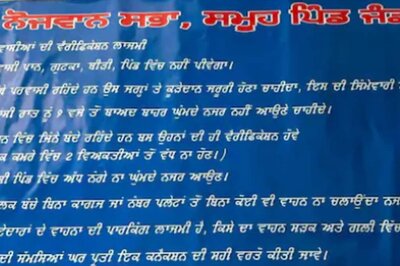 ਨੌਜਵਾਨ ਸਭਾ, ਸਮੂਹ ਪਿੰਡ ਜੰਡ
ਵਾਸੀਆਂ ਦੀ ਵੈਰੀਫਿਕੇਸ਼ਨ ਲਾਜ਼ਮੀ
ਵਾਸੀ ਪਾਨ, ਗੁਟਕਾ, ਬੀੜੀ, ਪਿੰਡ ਵਿੱਚ ਨਹੀਂ ਪੀਵੇਗਾ।
ਪਰਵਾਸੀ ਰਹਿੰਦੇ ਹਨ ਉਸ ਜਗ੍ਹਾ ਤੇ ਕੂੜੇਦਾਨ ਜ਼ਰੂਰੀ ਹੋਣਾ ਚਾਹੀਦਾ, ਇਸ ਦੀ ਜਿੰਮੇਵਾਰੀ
ਸੀ ਰਾਤ ਨੂੰ 9 ਵਜੇ ਤੋਂ ਬਾਅਦ ਬਾਹਰ ਘੁੰਮਦੇ ਨਜ਼ਰ ਨਹੀਂ ਆਉਣੇ ਚਾਹੀਦੇ।
ਵਿੱਚ ਜਿੰਨੇ ਬੰਦੇ ਰਹਿੰਦੇ ਹਨ ਬਸ ਉਹਨਾਂ ਦੀ ਹੀ ਵੈਰੀਫਿਕੇਸ਼ਨ ਹੋਵੇ
ਕ ਕਮਰੇ ਵਿੱਚ 2 ਵਿਅਕਤੀਆਂ ਤੋਂ ਵੱਧ ਨਾ ਹੋਣ।)
ਸੀ ਪਿੰਡ ਵਿੱਚ ਅੱਧ ਨੰਗੇ ਨਾ ਘੁੰਮਦੇ ਨਜ਼ਰ ਆਉਣ।
ਲਕ ਬੱਚੇ ਬਿਨਾ ਕਾਗਜ ਜਾਂ ਨੰਬਰ ਪਲੇਟਾਂ ਤੋਂ ਬਿਨਾ ਕੋਈ ਵੀ ਵਾਹਨ ਨਾ ਚਲਾਉਂਦਾ ਨਜ਼
ਏਦਾਰਾਂ ਦੇ ਵਾਹਨਾ ਦੀ ਪਾਰਕਿੰਗ ਲਾਜ਼ਮੀ ਹੈ, ਕਿਸੇ ਦਾ ਵਾਹਨ ਸੜਕ ਅਤੇ ਗਲੀ ਵਿੱਚ
ਦੀ ਸਮੱਸਿਆ ਘਰ ਪ੍ਰਤੀ ਇਕ ਕਨੈਕਸ਼ਨ ਦੀ ਸਹੀ ਵਰਤੋਂ ਕੀਤੀ ਜਾਵੇ।